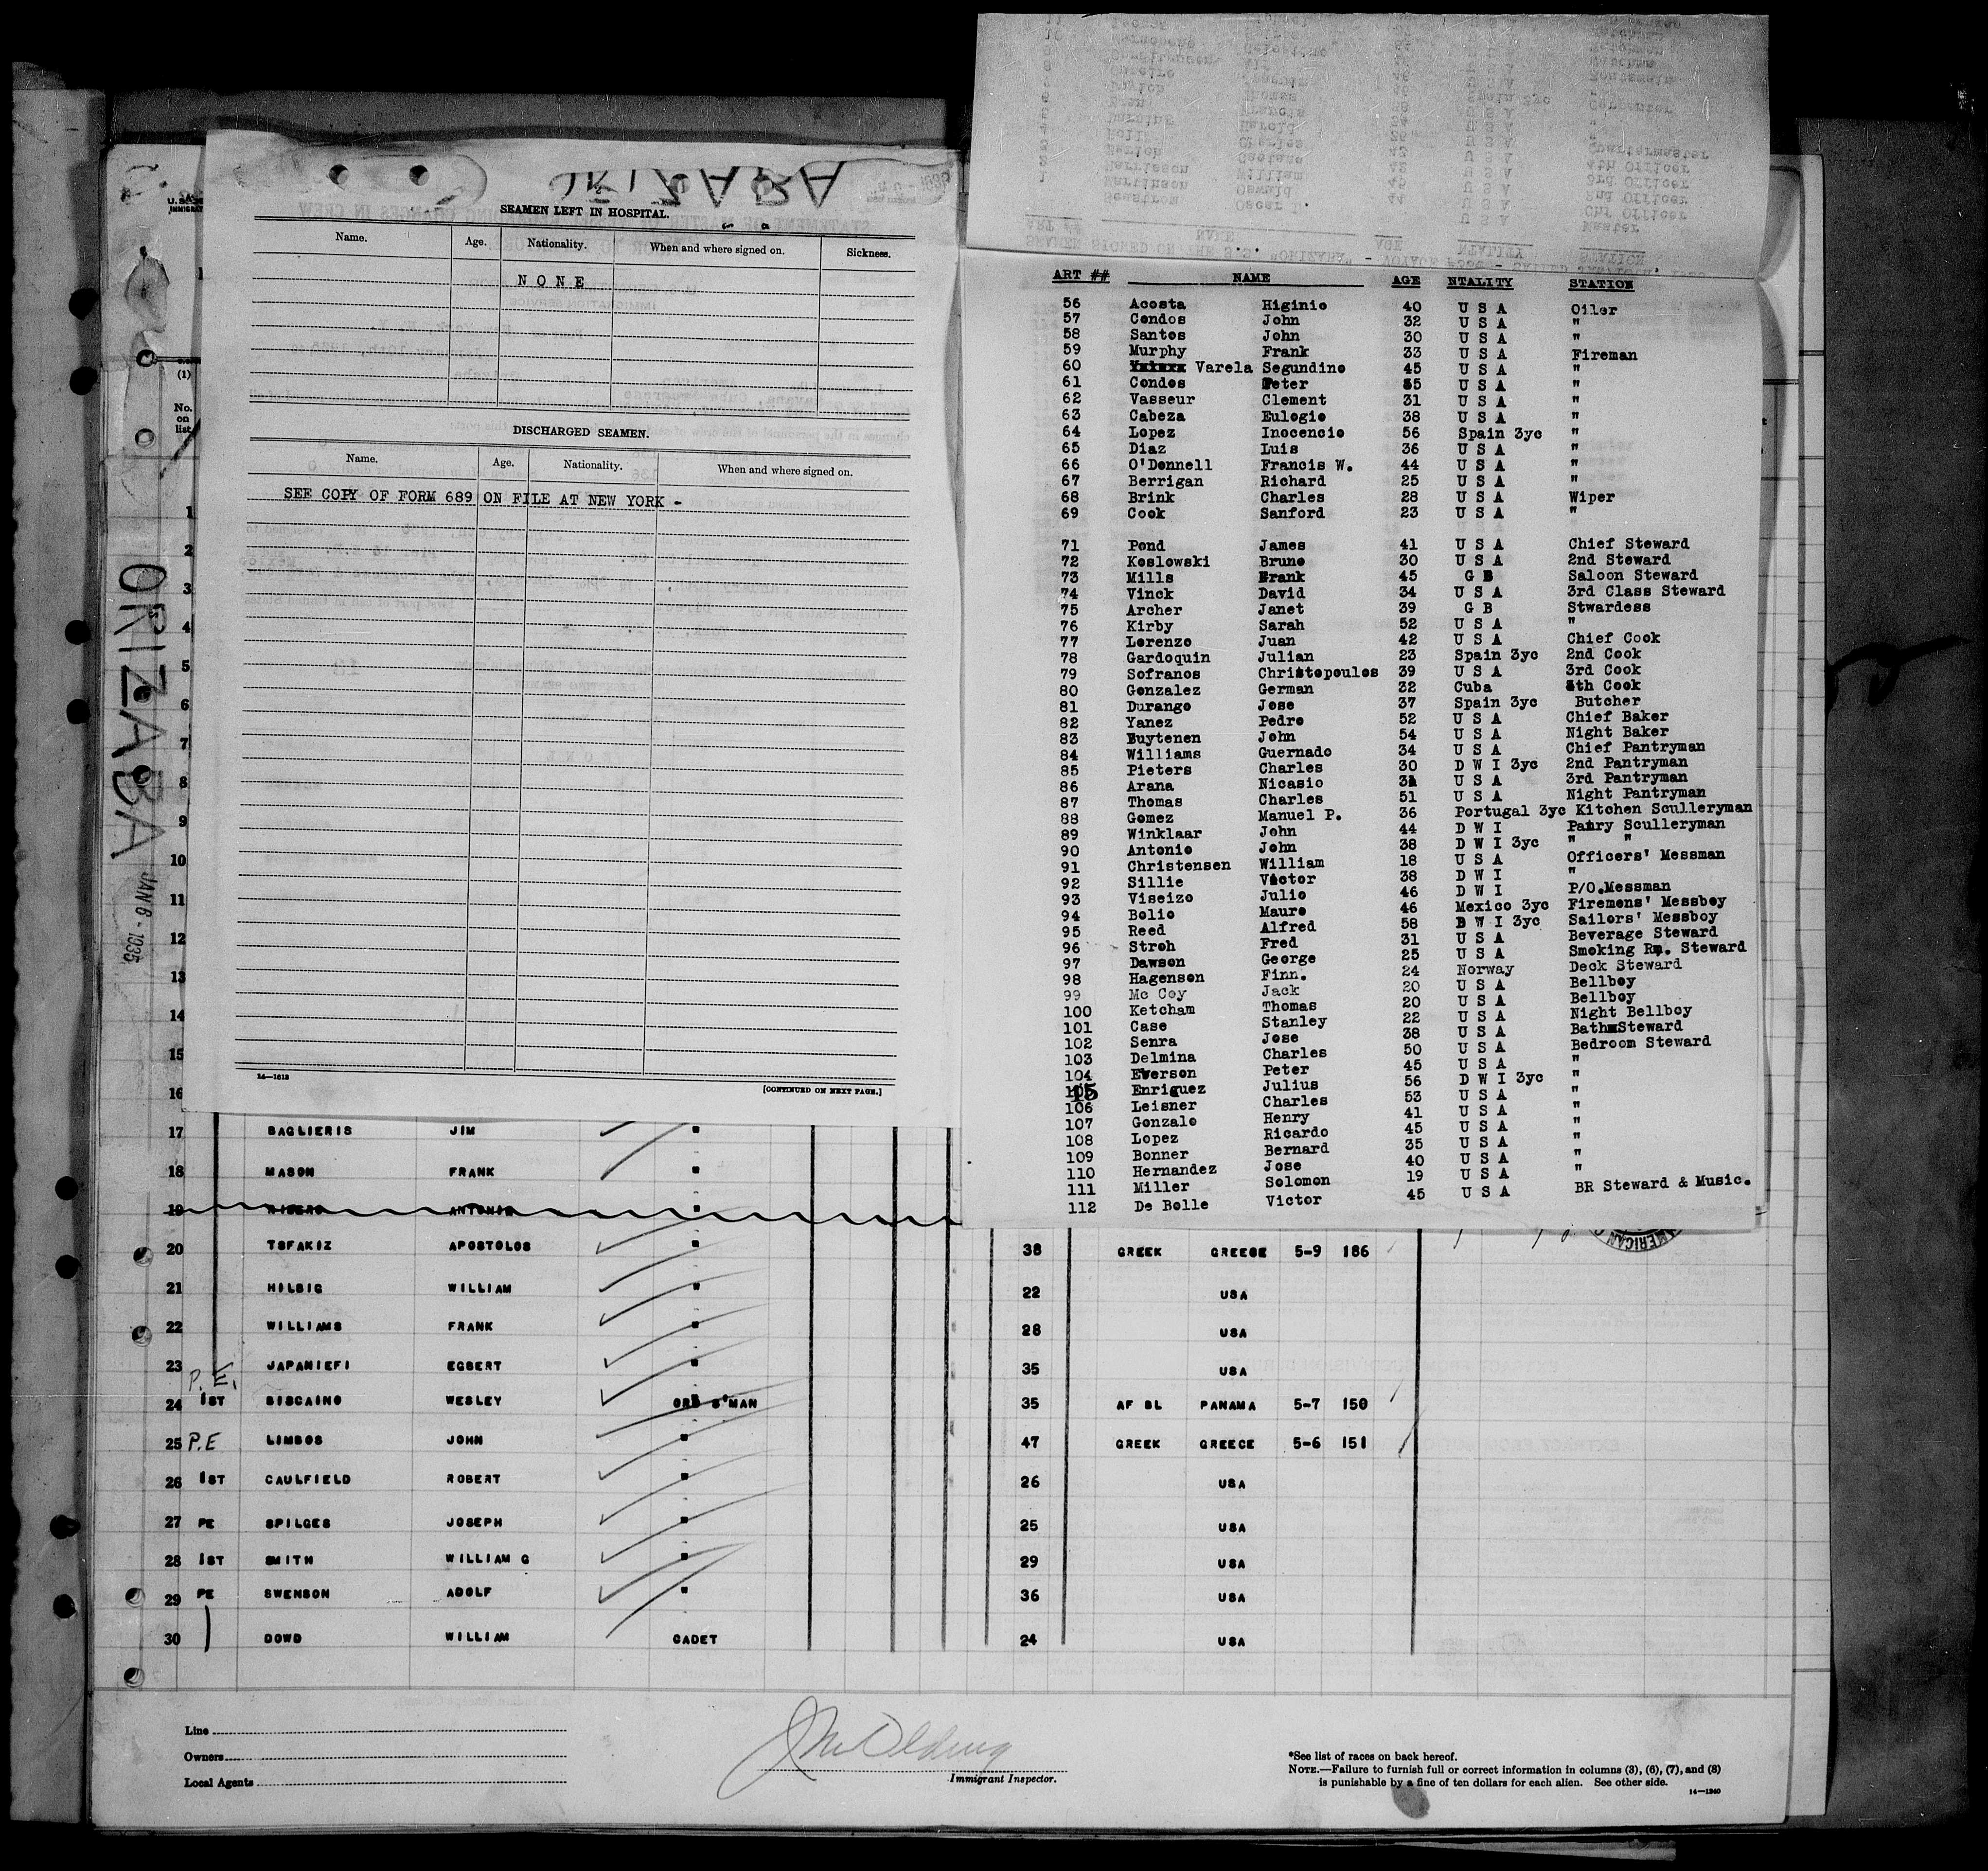 ORIZABA
SEAMEN LEFT IN HOSPITAL.
Name. Age. Nationality. When and where signed on. Sickness.
NONE
DISCHARGED SEAMEN.
Name. Age. Nationality. When and where signed on.
SEE COPY OF FORM 689 ON FILE AT NEW YORK -
14—1613
[CONTINUED ON NEXT PAGE.]
ORIZABA JAN 6 - 1935
(1)
No. on list
1
2
3
4
5
6
7
8
9
10
11
12
13
14
15
16
ART ## NAME AGE NTALITY STATION
56 Acosta Higinio 40 U S A Oiler
57 Condos John 32 U S A "
58 Santos John 30 U S A "
59 Murphy Frank 33 U S A Fireman
60 Varela Segundino 45 U S A "
61 Condos Peter 35 U S A "
62 Vasseur Clement 31 U S A "
63 Cabeza Eulogio 38 U S A "
64 Lopez Inocencio 56 Spain 3yc "
65 Diaz Luis 36 U S A "
66 O'Donnell Francis W. 44 U S A "
67 Berrigan Richard 25 U S A "
68 Brink Charles 28 U S A Wiper
69 Cook Sanford 23 U S A "
71 Pond James 41 U S A Chief Steward
72 Koslowski Bruno 30 U S A 2nd Steward
73 Mills Frank 45 G B Saloon Steward
74 Vinck David 34 U S A 3rd Class Steward
75 Archer Janet 39 G B Stwardess
76 Kirby Sarah 52 U S A "
77 Lorenzo Juan 42 U S A Chief Cook
78 Gardoquin Julian 23 Spain 3yc 2nd Cook
79 Sofranos Christopoulos 39 U S A 3rd Cook
80 Gonzalez German 32 Cuba 4th Cook
81 Durango Jose 37 Spain 3yc Butcher
82 Yanez Pedro 52 U S A Chief Baker
83 Buytenen John 54 U S A Night Baker
84 Williams Guernado 34 U S A Chief Pantryman
85 Pieters Charles 30 D W I 3yc 2nd Pantryman
86 Arana Nicasio U S A 3rd Pantryman
87 Thomas Charles 51 U S A Night Pantryman
88 Gomez Manuel P. 36 Portugal 3yc Kitchen Sculleryman
89 Winklaar John 44 D W I Pantry Sculleryman
90 Antonio John 38 D W I 3yc " "
91 Christensen William 18 U S A Officers' Messman
92 Sillie Victor 38 D W I "
93 Viseizo Julio 46 D W I P/O.Messman
94 Bolio Mauro 46 Mexico 3yc Firemens' Messboy
95 Reed Alfred 58 D W I 3yc Sailors' Messboy
96 Stroh Fred 31 U S A Beverage Steward
97 Dawson George 25 U S A Smoking Rm. Steward
98 Hagenson Finn. 24 Norway Deck Steward
99 Mc Coy Jack 20 U S A Bellboy
100 Ketcham Thomas 20 U S A Bellboy
101 Case Stanley 22 U S A Night Bellboy
102 Senra Jose 38 U S A Bath Steward
103 Delmina Charles 50 U S A Bedroom Steward
104 Everson Peter 45 U S A "
105 Enriquez Julius 56 D W I 3yc "
106 Leisner Charles 53 U S A "
107 Gonzalo Henry 41 U S A "
108 Lopez Ricardo 45 U S A "
109 Bonner Bernard 35 U S A "
110 Hernandez Jose 40 U S A "
111 Miller Solomon 19 U S A "
112 De Bolle Victor 45 U S A BR Steward & Music.
17 BAGLIERIS JIM "
18 MASON FRANK "
19 RIBERO ANTONIO "
20 TSFAKIZ APOSTOLOS " 38 GREEK GREECE 5-9 186
21 HILBIG WILLIAM " 22 USA
22 WILLIAMS FRANK " 28 USA
23 JAPANIEFI EGBERT " 35 USA
P.E.
24 1ST BISCAINO WESLEY ORD S'MAN 35 AF BL PANAMA 5-7 150
25 P.E LIMBOS JOHN " 47 GREEK GREECE 5-6 151
26 1ST CAULFIELD ROBERT " 26 USA
27 PE SPILGES JOSEPH " 25 USA
28 1ST SMITH WILLIAM G " 29 USA
29 PE SWENSON ADOLF " 36 USA
30 DOWD WILLIAM CADET 24 USA
AMERICAN
Line
Owners
Local Agents
Immigrant Inspector.
*See list of races on back hereof.
NOTE.—Failure to furnish full or correct information in columns (3), (6), (7), and (8)
is punishable by a fine of ten dollars for each alien. See other side.
14—1240